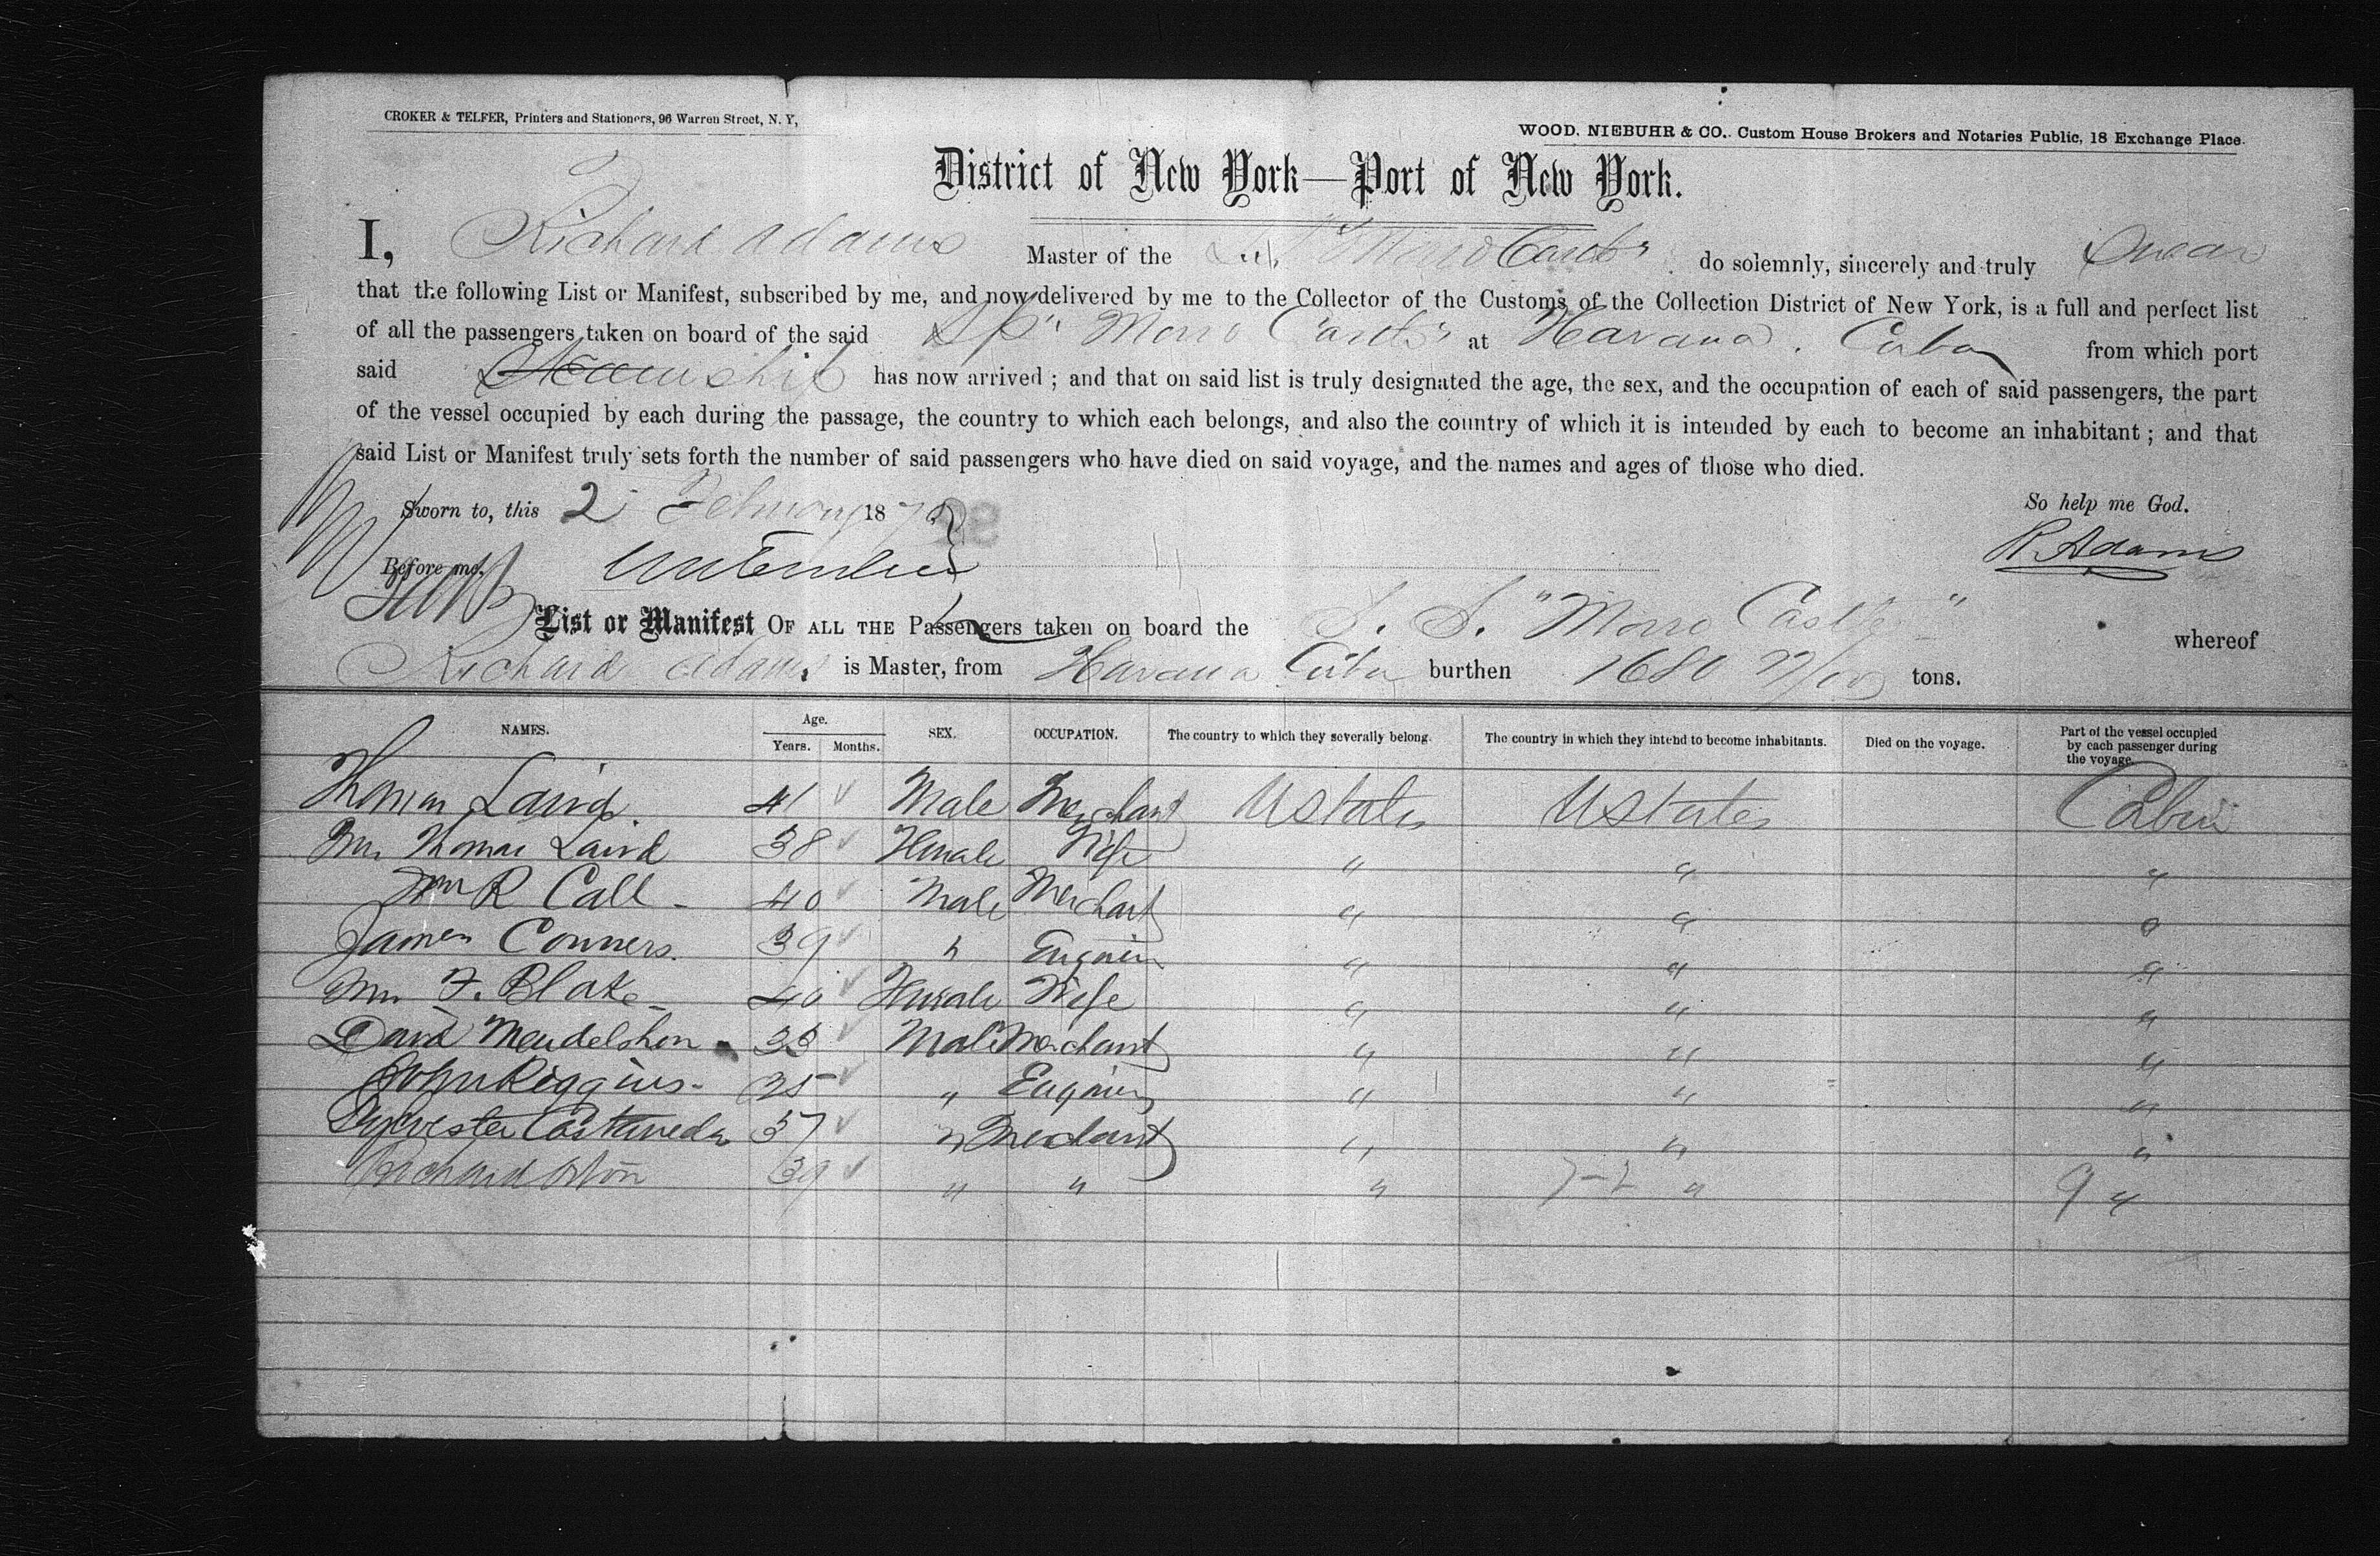 CROKER & TELFER, Printers and Stationers, 96 Warren Street, N. Y,
WOOD, NIEBUHR & CO., Custom House Brokers and Notaries Public, 18 Exchange Place.
District of New York—Port of New York.
I, Richard Adams Master of the Morro Castle do solemnly, sincerely and truly Swear
that the following List or Manifest, subscribed by me, and now delivered by me to the Collector of the Customs of the Collection District of New York, is a full and perfect list
of all the passengers taken on board of the said Morro Castle at Havana. Cuba from which port
said Steamship has now arrived; and that on said list is truly designated the age, the sex, and the occupation of each of said passengers, the part
of the vessel occupied by each during the passage, the country to which each belongs, and also the country of which it is intended by each to become an inhabitant; and that
said List or Manifest truly sets forth the number of said passengers who have died on said voyage, and the names and ages of those who died.
Sworn to, this 2 February 187 So help me God.
Before me, R. Adams
List or Manifest OF ALL THE Passengers taken on board the S. S. "Morro Castle" whereof
Richard Adams is Master, from Havana Cuba burthen 1680 tons.
NAMES. Age. Years. Months. SEX. OCCUPATION. The country to which they severally belong. The country in which they intend to become inhabitants. Died on the voyage. Part of the vessel occupied by each passenger during the voyage.
Thomas Laird. 41 Male Merchant UStates UStates Cabin
Mrs Thomas Laird 38 Female Wife " " "
Wm R Call - 40 Male Merchant " " "
James Conners. 39 " Engineer " " "
Mrs F. Blake - 40 Female Wife " " "
David Mendelshon 33 Male Merchant " " "
John Riggins - 35 " Engineer " " "
Sylvester Castaneda 37 " Merchant " " "
Richard Orton 39 " " " 7-2 " 9 "